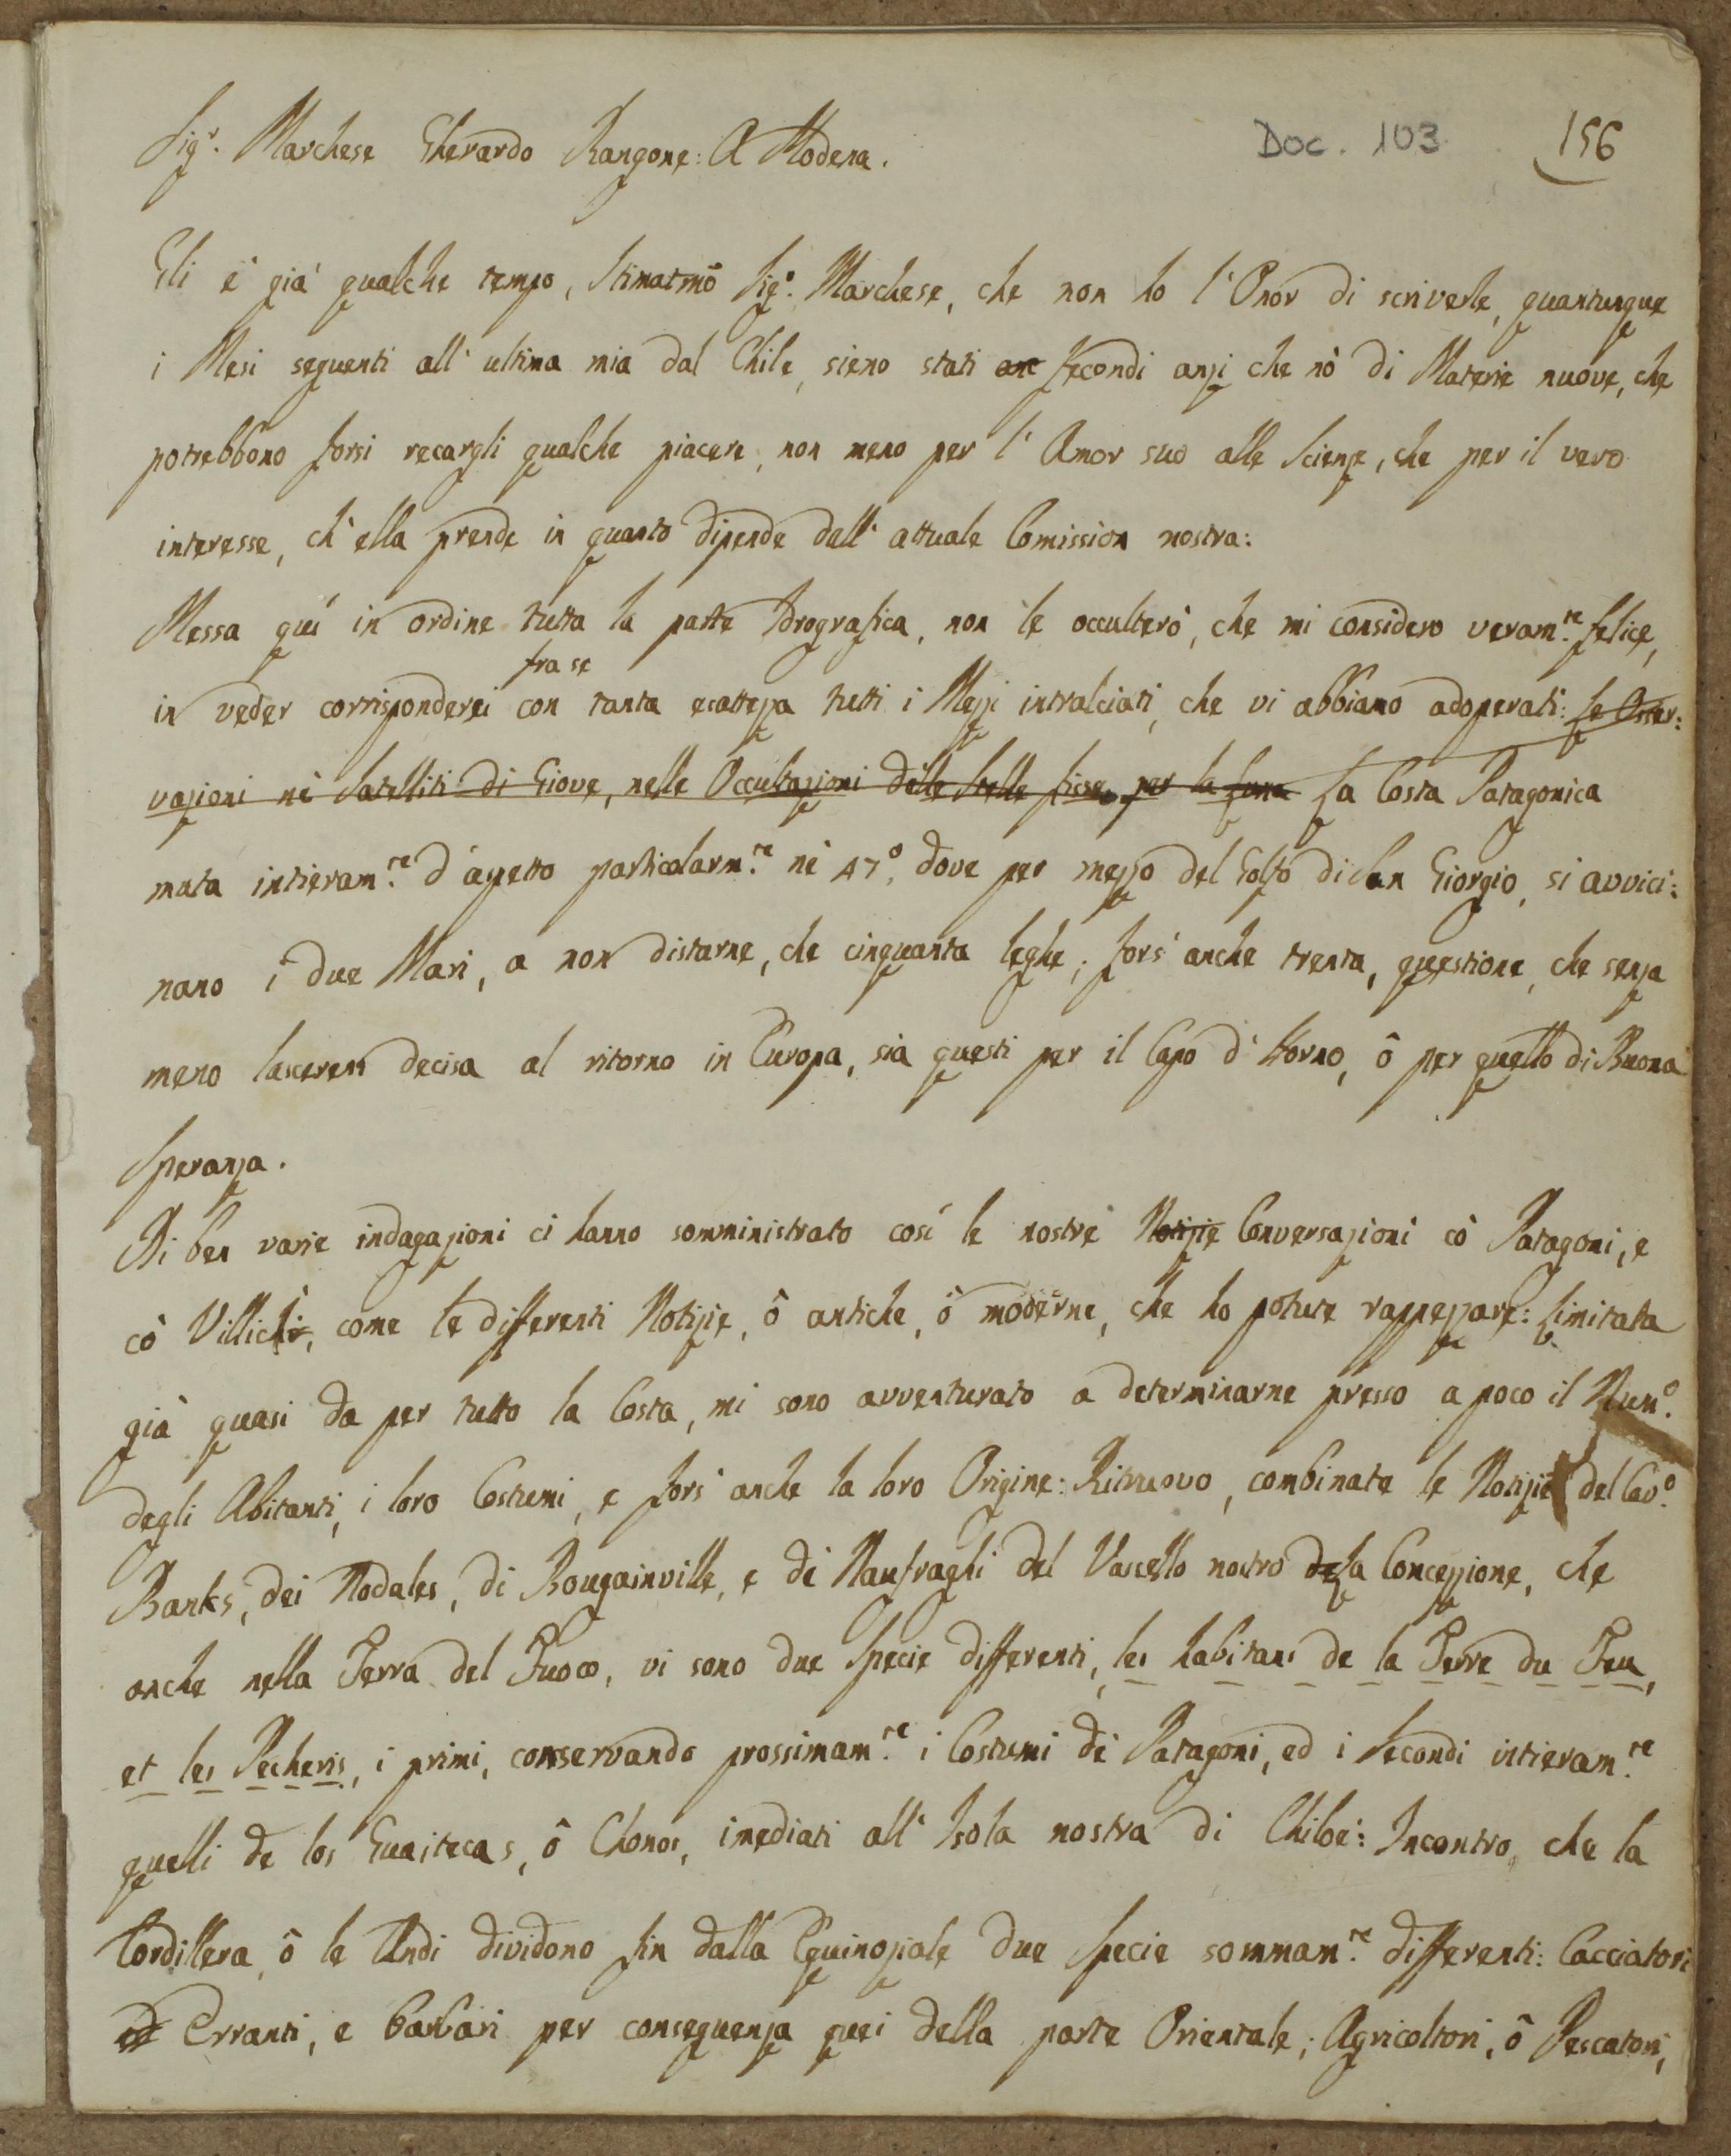 Sig.r Marchese Gherardo Rangone: A Modena.
Doc. 103
156
Gli è già qualche tempo, Stimatmõ Sig.r Marchese, che non ho l'Onor di scriverle, quantunque
i Mesi seguenti all'ultima mia dal Chile, sieno stati anc fecondi anzi che nò di Materie nuove, che
potrebbono forsi recargli qualche piacere, non meno per l'Amor suo alle Scienze, che per il vero
interesse, ch'ella prende in quanto dipende dall'attuale Comission nostra:
Messa quì in ordine tutta la parte Idrografica, non le occulterò, che mi considero veram.te felice,
fra se
in veder corrisponderci con tanta esattezza tutti i Mezzi intralciati, che vi abbiamo adoperati: le Osser:
vazioni ne' Satelliti di Giove, nelle Occultazioni delle Stelle fisse, per la Luna La Costa Patagonica
muta intieram.te d'aspetto particolarm.te ne' 47°, dove per mezzo del Golfo di San Giorgio, si avvici:
nano i due Mari, a non distarne, che cinquanta leghe; fors'anche trenta, questione, che senza
meno lascerem decisa al ritorno in Europa, sia questi per il Capo d'Horno, ô per quello di Buona
Speranza.
Di ben varie indagazioni ci hanno somministrato così le nostre Notizie Conversazioni co' Patagoni, e
co' Villichi, come le differenti Notizie, ô antiche, ô moderne, che ho potute rappezzare: limitata
già quasi da per tutto la Costa, mi sono avventurato a determinarne presso a poco il Num.o
degli Abitanti, i loro Costumi, e fors'anche la loro Origine: Ritruovo, combinate le Notizie del Cav.o
Banks, dei Nodales, di Bougainville, e de' Naufraghi del Vascello nostro dela Concezzione, che
anche nella Terra del Fuoco, vi sono due Specie differenti, les habitans de la Terre du Feu,
et les Pecheris, i primi, conservando prossimam.te i Costumi de' Patagoni, ed i Secondi intieram.te
quelli de los Guaitecas, ô Chonos, imediati all'Isola nostra di Chiloè: Incontro, che la
Cordillera, ô le Andi dividono fin dalla Equinoziale due Specie sommam.te differenti: Cacciatori
ed Erranti, e barbari per conseguenza quei della parte Orientale; Agricoltori, ô Pescatori,